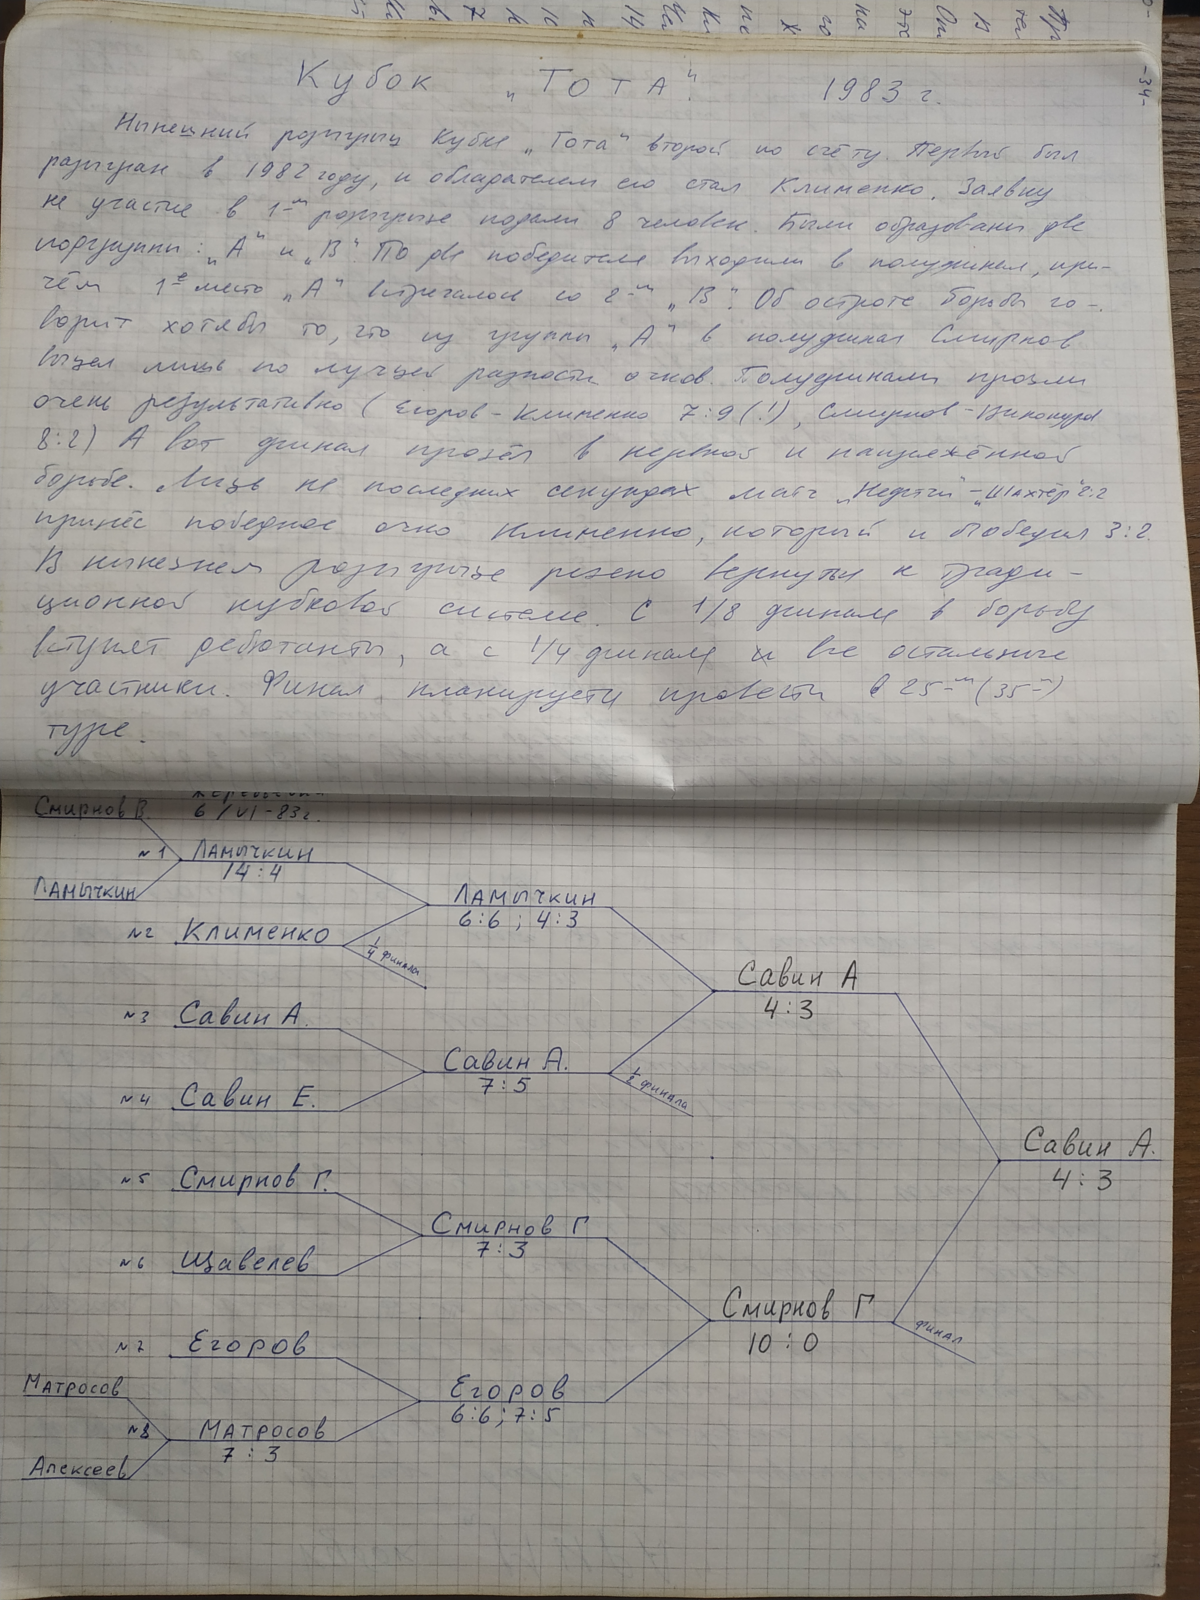 -34-
Кубок „Тота". 1983 г.
Нынешний розыгрыш Кубка „Тота" второй по счёту. Первый был
разыгран в 1982 году, и обладателем его стал Клименко. Заявку
на участие в 1-м розыгрыше подали 8 человек. Были образованы две
подгруппы: „А" и „В". По два победителя выходили в полуфинал, при-
чём 1е место „А" встречалось со 2-м „В". Об остроте борьбы го-
ворит хотябы то, что из группы „А" в полуфинал Смирнов
вышел лишь по лучшей разности очков. Полуфиналы прошли
очень результативно (Егоров-Клименко 7:9(!), Смирнов-Винокуров
8:2) А вот финал прошёл в нервной и напряжённой
борьбе. Лишь на последних секундах матч „Нефтчи"-„Шахтёр" 2:2
принёс победное очко Клименко, который и победил 3:2.
В нынешнем розыгрыше решено вернуться к тради-
ционной кубковой системе. С 1/8 финала в борьбу
вступят дебютанты, а с 1/4 финала и все остальные
участники. Финал планируется провести в 25-м (35-м)
туре.
6/VI-83г.
Смирнов В.
№1 Ламычкин
14:4
Ламычкин
Ламычкин
6:6; 4:3
№2 Клименко
1/4 финала
Савин А
4:3
№3 Савин А.
Савин А.
7:5
1/2 финала
№4 Савин Е.
Савин А.
4:3
№5 Смирнов Г.
Смирнов Г
7:3
№6 Щавелев
Смирнов Г
10:0
финал
№7 Егоров
Матросов
Егоров
6:6; 7:5
№8 Матросов
7:3
Алексеев